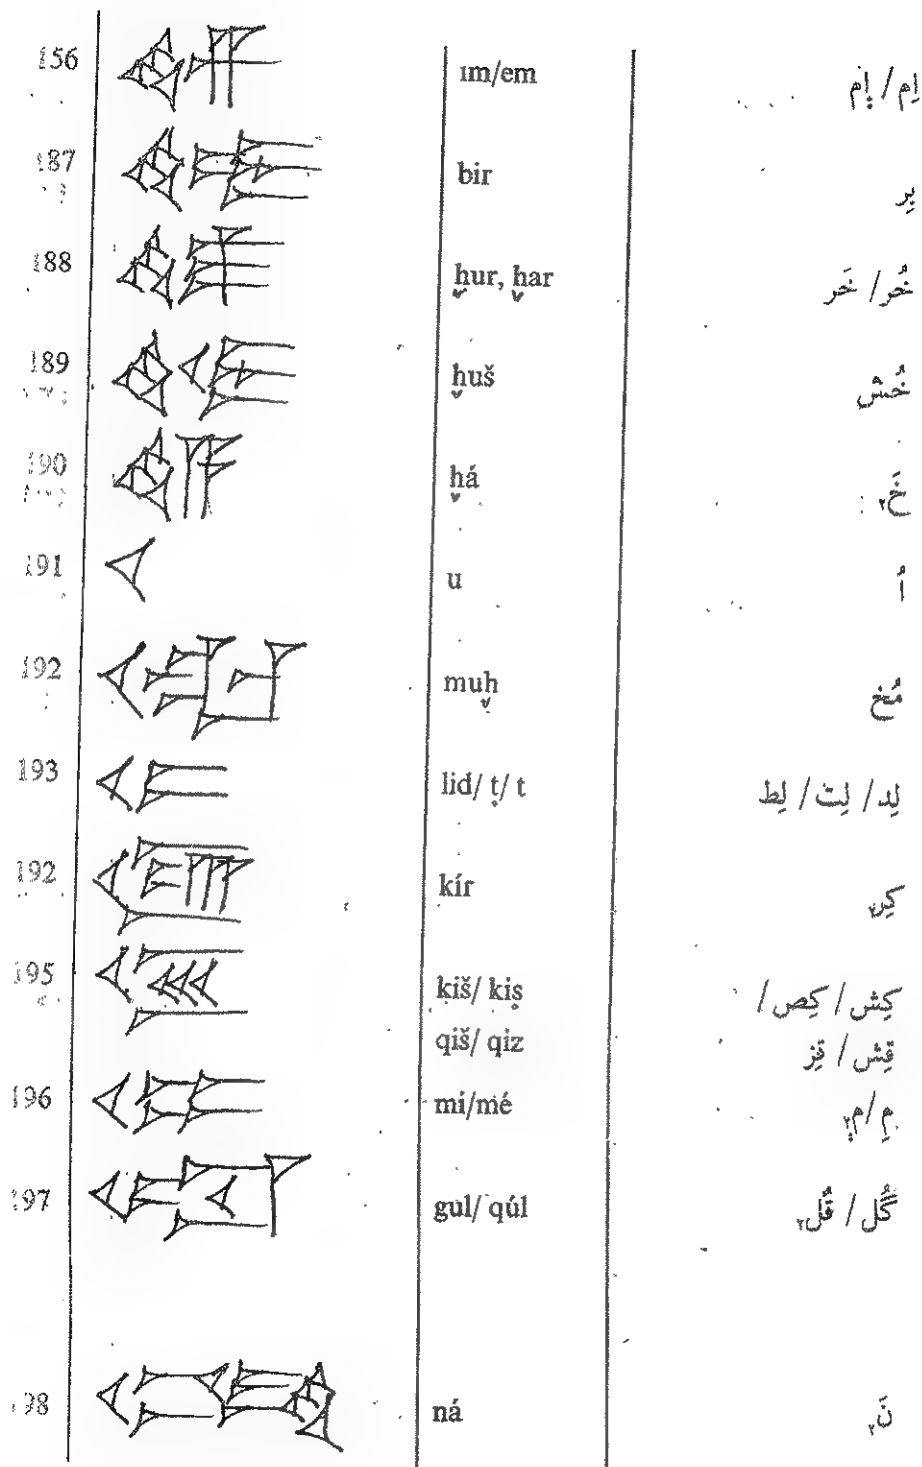 156 im/em اِم / اِم
187 bir بِر
188 ḫur, ḫar خُر / خَر
189 ḫuš خُش
190 ḫá خَ٢
191 u اُ
192 muḫ مُخ
193 lid/ ṭ/ t لِد / لِت / لِط
192 kír كِر٢
195 kiš/ kiṣ كِش / كِص /
qiš/ qiz قِش / قِز
196 mí/mé مِ / م٢
197 gul/ qúl گُل / قُل٢
198 ná نَ٢